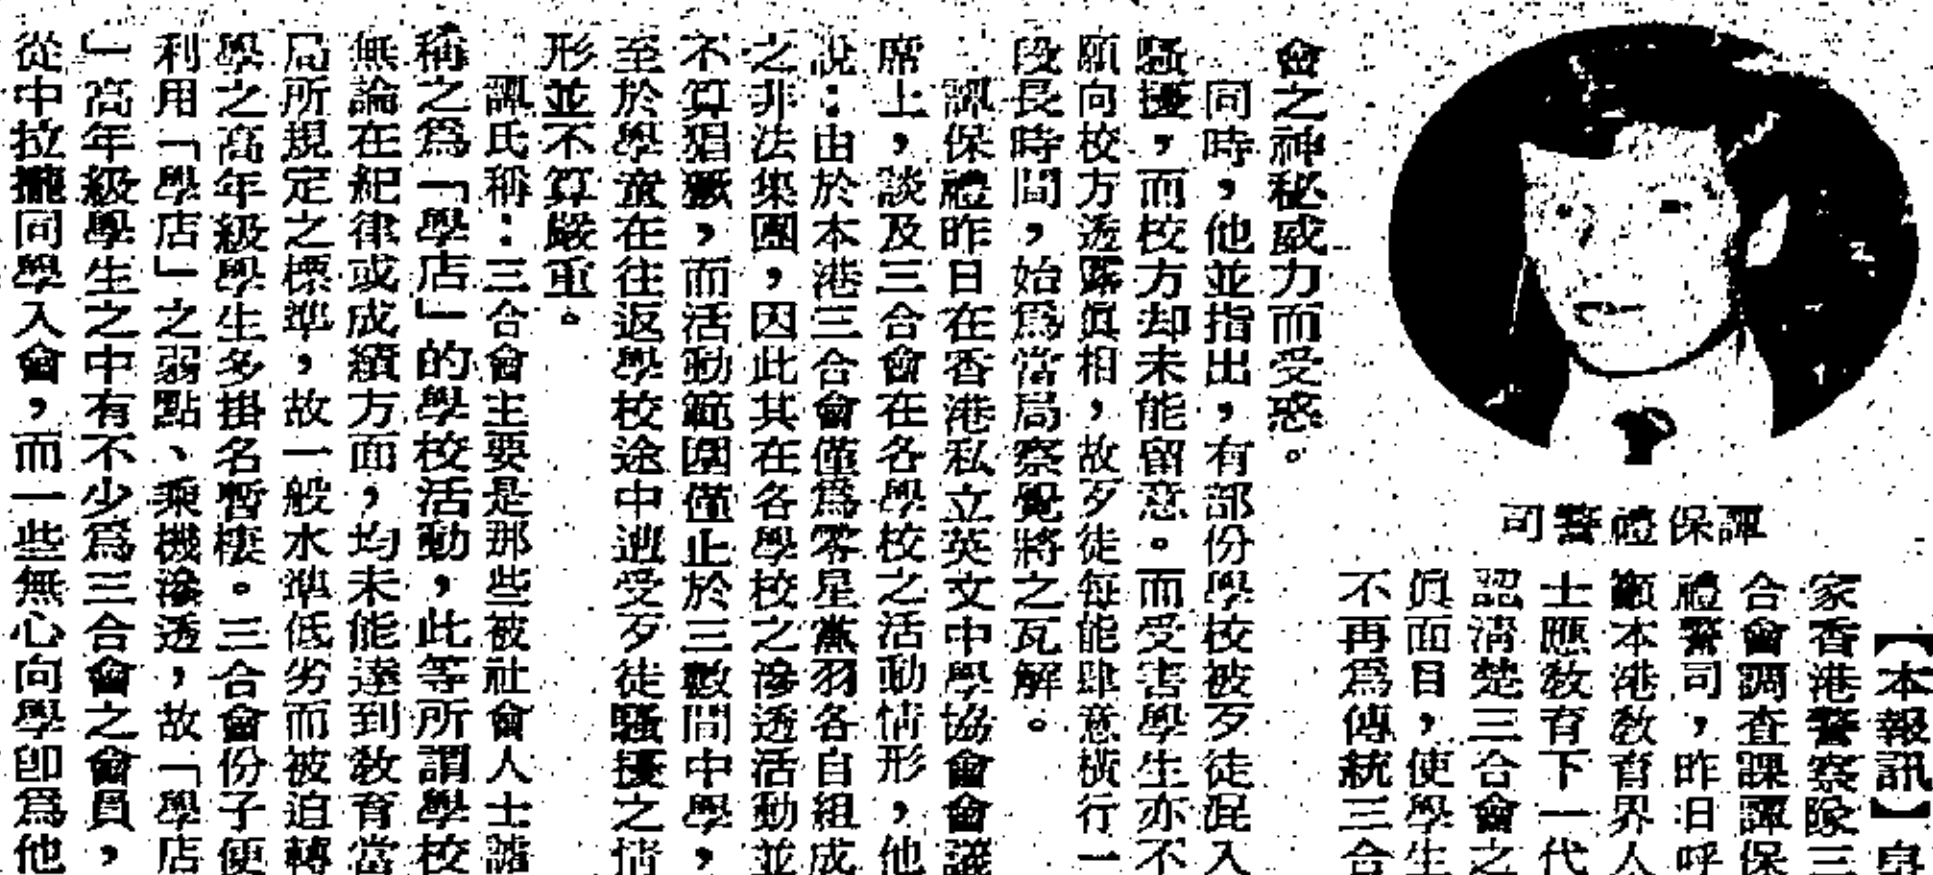 譚保禮警司
【本報訊】皇
家香港警察隊三
合會調查課譚保
禮警司，昨日呼
籲本港教育界人
士應教育下一代
認清楚三合會之
眞面目，使學生
不再爲傳統三合
會之神秘威力而受惑。
同時，他並指出，有部份學校被歹徒混入
騷擾，而校方却未能留意。而受害學生亦不
願向校方透露眞相，故歹徒每能肆意橫行一
段長時間，始爲當局察覺將之瓦解。
譚保禮昨日在香港私立英文中學協會會議
席上，談及三合會在各學校之活動情形，他
說：由於本港三合會僅爲零星黨羽各自組成
之非法集團，因此其在各學校之滲透活動並
不算猖獗，而活動範圍僅止於三數間中學，
至於學童在往返學校途中遭受歹徒騷擾之情
形並不算嚴重。
譚氏稱：三合會主要是那些被社會人士諸
稱之爲「學店」的學校活動，此等所謂學校
無論在紀律或成績方面，均未能達到教育當
局所規定之標準，故一般水準低劣而被迫轉
學之高年級學生多掛名暫棲。三合會份子便
利用「學店」之弱點、乘機滲透，故「學店
」高年級學生之中有不少爲三合會之會員，
從中拉攏同學入會，而一些無心向學卽爲他